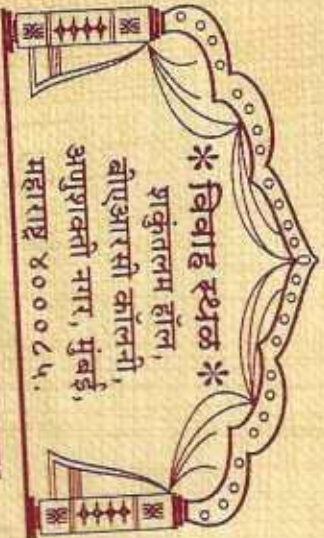 * विवाह स्थळ *
शकुंतलम हॉल,
बीएआरसी कॉलनी,
अणुशक्ती नगर, मुंबई,
महाराष्ट्र ४०००८५.